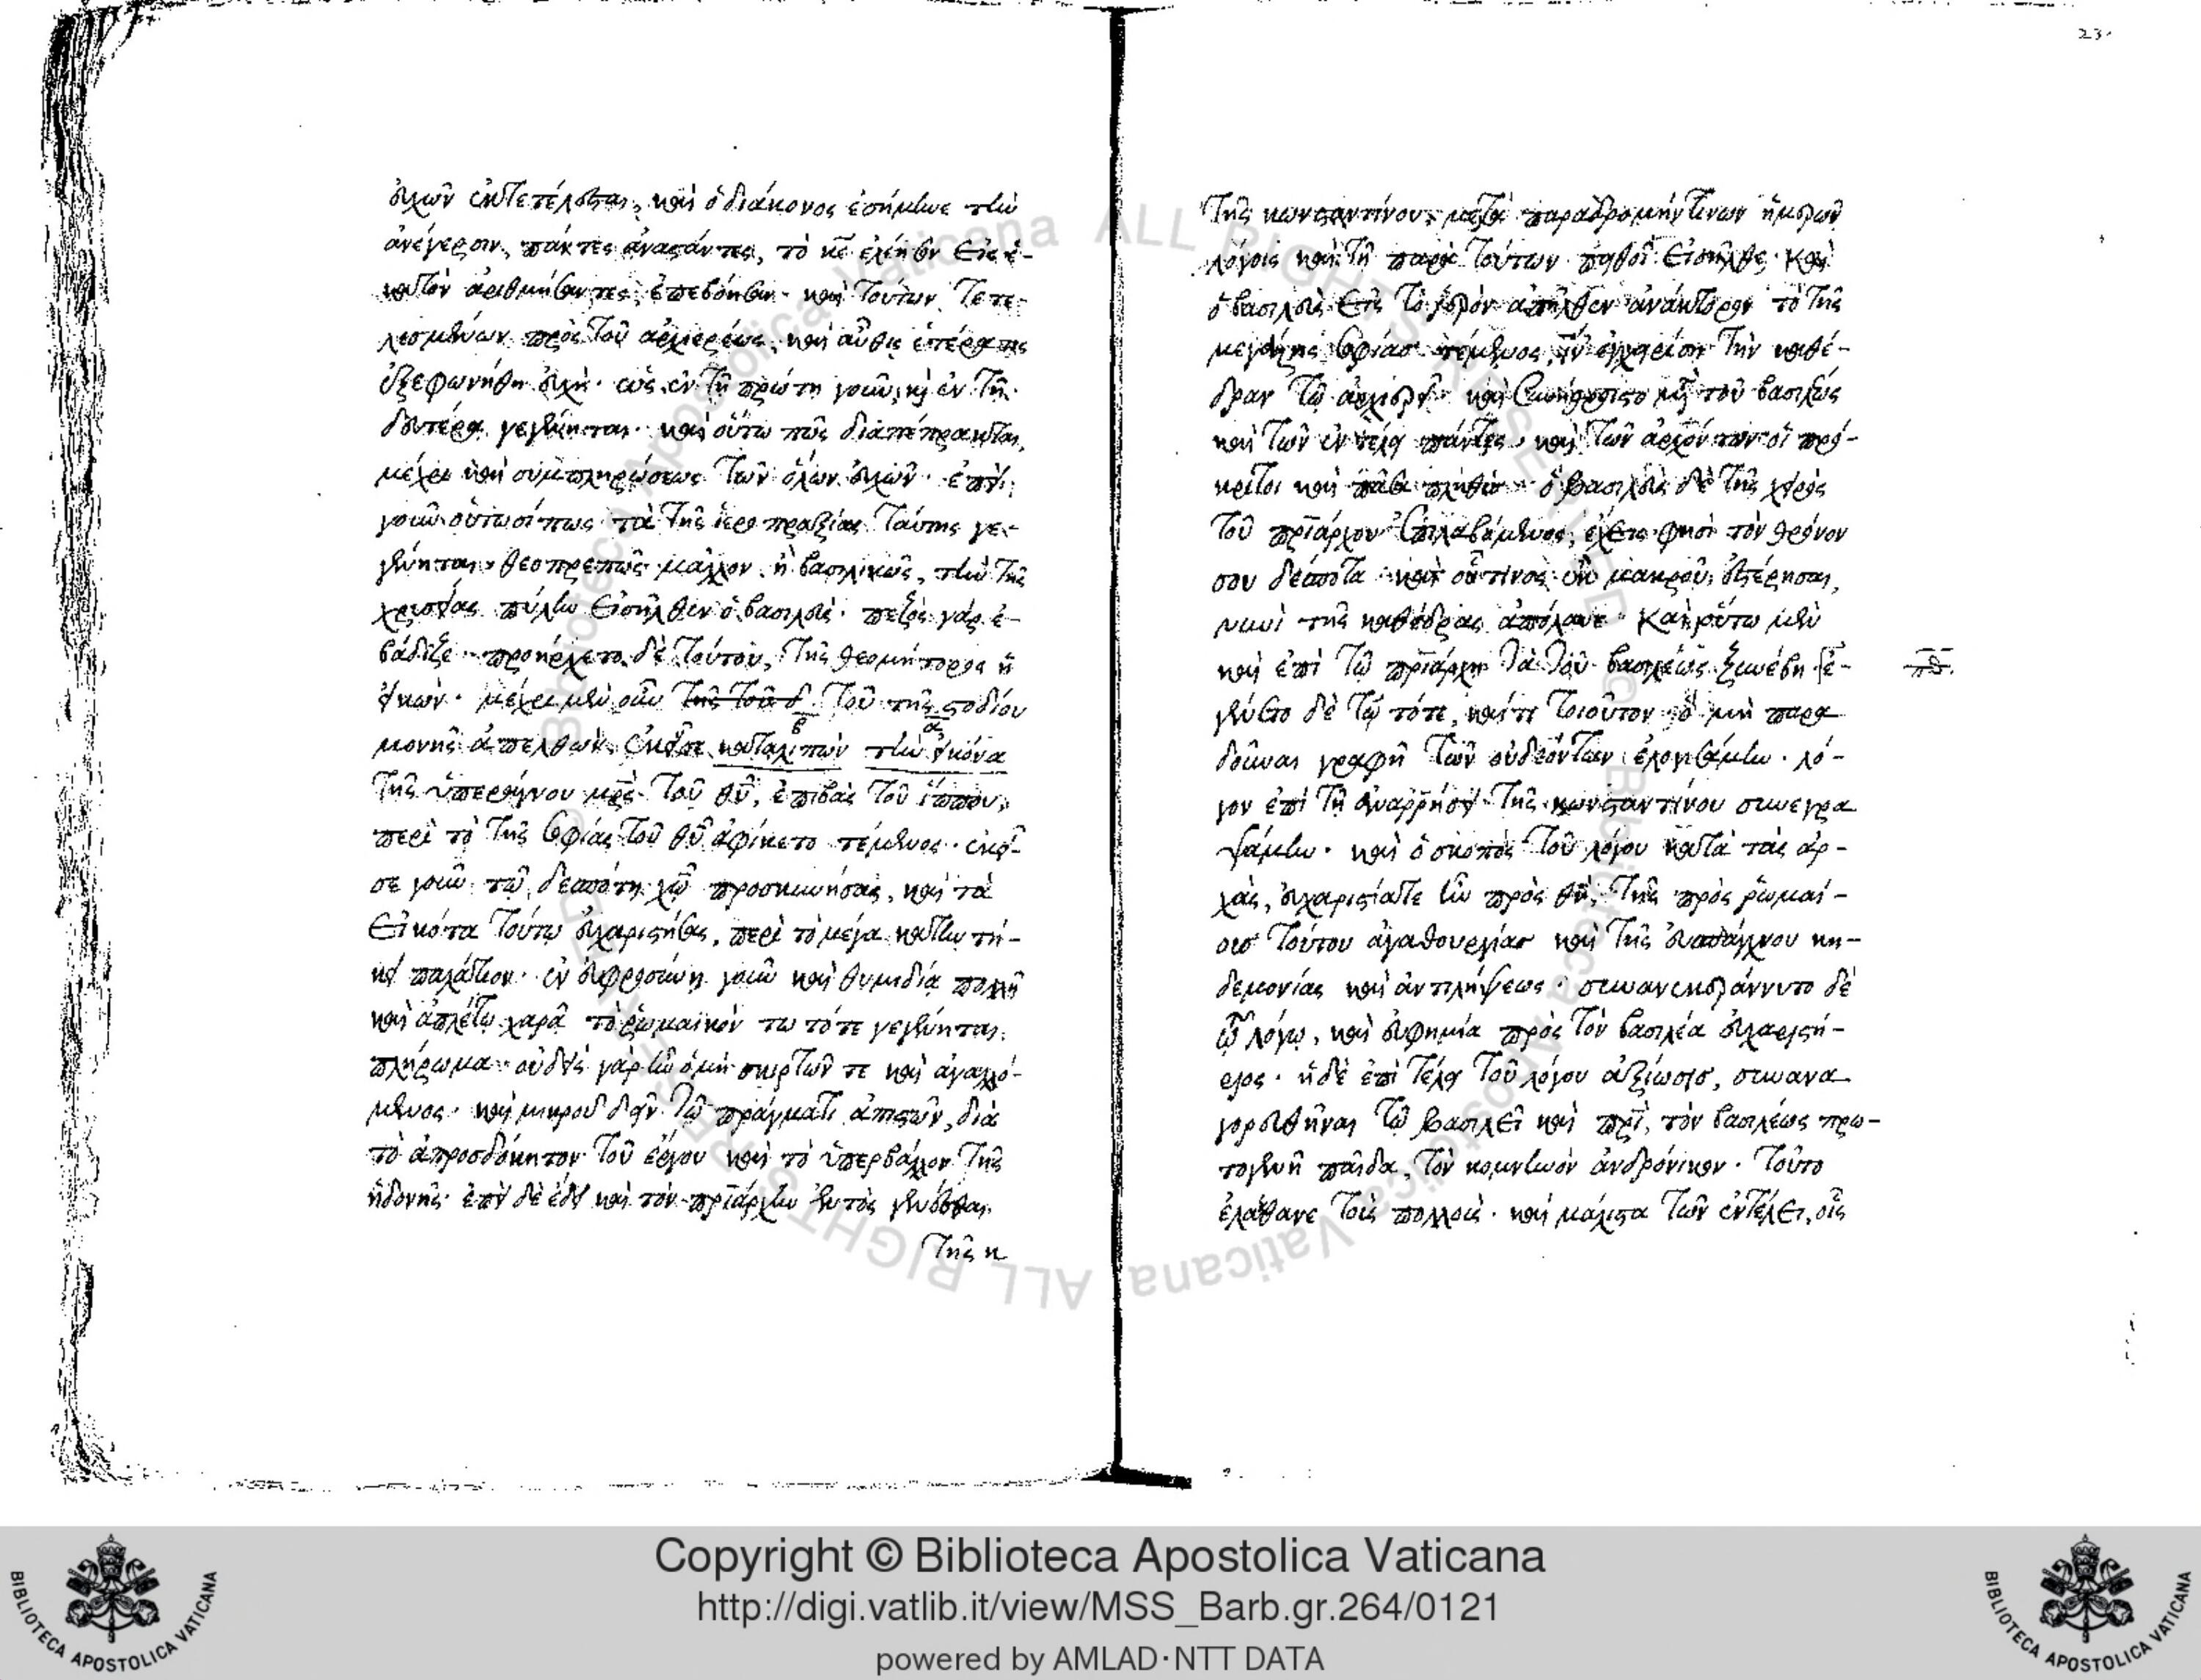 23.
εὐχῶν ἐκτετέλεσται, καὶ ὁ διάκονος ἐσήμανε τὴν
ἀνέγερσιν, πάντες ἀναστάντες, τὸ κε ἐλέησον εἰς ἑ-
κατὸν ἀριθμήσαντες, ἐπεβόησαν. καὶ τούτων τετε-
λεσμένων πρὸς τοῦ ἀρχιερέως, καὶ αὖθις ἑτέρα τις
ἐξεφωνήθη εὐχή. ὡς ἐν τῇ πρώτῃ γοῦν, καὶ ἐν τῇ
δευτέρᾳ γεγένηται. καὶ οὕτω πῶς διαπέπρακται,
μέχρι καὶ συμπληρώσεως τῶν ὅλων εὐχῶν. ἐπεὶ
γοῦν οὑτωσί πως τὰ τῆς ἱεροπραξίας ταύτης γε-
γένηται, θεοπρεπῶς μᾶλλον ἢ βασιλικῶς, τὴν τῆς
χρυσείας πύλην εἰσῆλθεν ὁ βασιλεύς. πεζὸς γὰρ ἐ-
βάδιζε. προήρχετο δὲ τούτου, τῆς θεομήτορος ἡ
εἰκών. μέχρι μὲν οὖν τοῦ τῆς στοδίου
μονῆς ἀπελθών, ἐκεῖσε καταλιπὼν τὴν εἰκόνα
τῆς ὑπεράγνου μρς τοῦ θυ, ἐπιβὰς τοῦ ἵππου,
περὶ τὸ τῆς σοφίας τοῦ θυ ἀφίκετο τέμενος. ἐκεῖ-
σε γοῦν τῷ δεσπότῃ χω προσκυνήσας, καὶ τὰ
εἰκότα τούτῳ εὐχαριστήσας, περὶ τὸ μέγα κατηντή-
κει παλάτιον. ἐν εὐφροσύνῃ γοῦν καὶ θυμηδίᾳ πολλῇ
καὶ ἀπλέτῳ χαρᾷ τὸ ῥωμαϊκὸν τω τότε γεγένηται
πλήρωμα. οὐδεὶς γὰρ ἦν ὁ μὴ σκιρτῶν τε καὶ ἀγαλλό-
μενος. καὶ μικροῦ δεῖν τῷ πράγματι ἀπιστῶν, διὰ
τὸ ἀπροσδόκητον τοῦ ἔργου καὶ τὸ ὑπερβάλλον τῆς
ἡδονῆς. ἐπεὶ δὲ ἔδει καὶ τὸν πριάρχην ἐντὸς γενέσθαι
τῆς κ
τῆς κωνσταντίνου, μετὰ παραδρομήν τινων ἡμερῶν
λόγοις καὶ τῇ παρὰ τούτων πειθοῖ εἰσῆλθε. καὶ
ὁ βασιλεὺς εἰς τὸ ἱερὸν ἀπῆλθεν ἀνάκτορον τὸ τῆς
μεγάλης σοφίας τέμενος, ἵν' ἐγχειρίσῃ τὴν καθέ-
δραν τῷ ἀρχιερεῖ. καὶ συνήθροιστο μετὰ τοῦ βασιλέως
καὶ τῶν ἐν τέλει πάντες, καὶ τῶν ἀρχόντων οἱ πρό-
κριτοι καὶ πᾶσα πληθύς. ὁ βασιλεὺς δὲ τῆς χειρὸς
τοῦ πριάρχου ἐπιλαβόμενος, ἔχεις φησὶ τὸν θρόνον
σου δέσποτα καὶ οὗτινος ἐκ μακροῦ ὑστέρησαι,
νυνὶ τῆς καθέδρας ἀπόλαυε. καὶ οὕτω μὲν
καὶ ἐπὶ τῷ πριάρχῃ τὰ τοῦ βασιλέως ξυνέβη. ἐ-
γένετο δὲ τῷ τότε, καί τι τοιοῦτον ὃ μὴ παρα
δοῦναι γραφῇ τῶν οὐ δεόντων ἐλογισάμην. λό-
γον ἐπὶ τῇ ἀναρρήσει τῆς κωνσταντίνου συνεγρα
ψάμην. καὶ ὁ σκοπὸς τοῦ λόγου κατὰ τὰς ἀρ-
χάς, εὐχαριστία τε ἦν πρὸς θν, τῆς πρὸς ῥωμαί-
οις τούτου ἀγαθουργίας καὶ τῆς εὐσπλάγχνου κη-
δεμονίας καὶ ἀντιλήψεως. συνανεκεράννυτο δὲ
τῷ λόγῳ, καὶ εὐφημία πρὸς τὸν βασιλέα εὐχαριστή-
ριος. ἡ δὲ ἐπὶ τέλει τοῦ λόγου ἀξίωσις, συνανα
γορευθῆναι τῷ βασιλεῖ καὶ πρι, τὸν βασιλέως πρω-
τογενῆ παῖδα, τὸν κομνηνὸν ἀνδρόνικον. τοῦτο
ἐλάνθανε τοὺς πολλούς. καὶ μάλιστα τῶν ἐν τέλει, οἷς
Copyright © Biblioteca Apostolica Vaticana
http://digi.vatlib.it/view/MSS_Barb.gr.264/0121
powered by AMLAD·NTT DATA
BIBLIOTECA APOSTOLICA VATICANA
BIBLIOTECA APOSTOLICA VATICANA